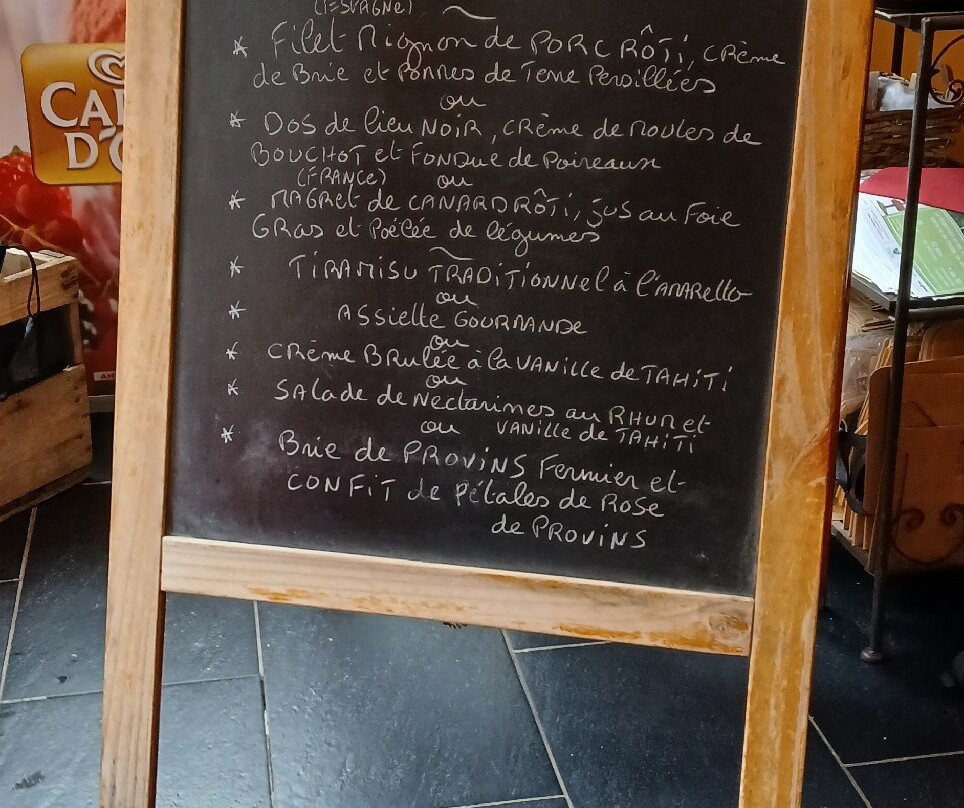 (ESPAGNE)
* Filet Mignon de PORC RÔTI, CRème
de Brie et Pommes de Terre Persillées
ou
* DOS de lieu NOIR, CRème de moules de
BOUCHOT et FONDUE de Poireaux
(FRANCE) ou
* MAGRet de CANARD RÔTI, jus au Foie
GRAS et Poêlée de légumes
* TIRAMISU TRADITIONNEL à l'AMARetto
ou
* ASSIette GOURMANDE
ou
* CRème BRulée à la VANille de TAHITI
ou
* SAlade de Nectarines au RHUM et
ou VANille de TAHITI
* Brie de PROVINS Fermier et
CONFIT de Pétales de ROSe
de PROVINS